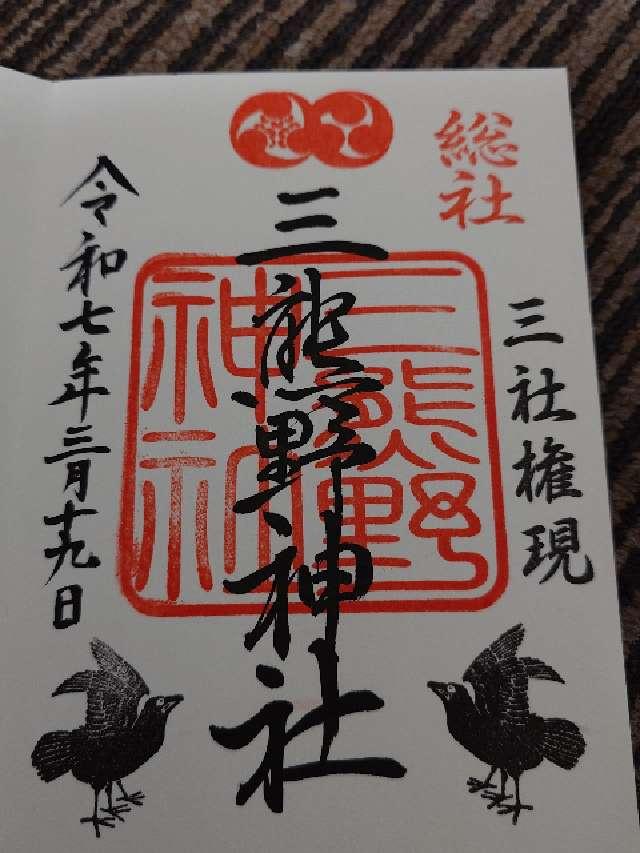 総社
三社権現
三熊野神社
三熊野
神社
令和七年三月十九日